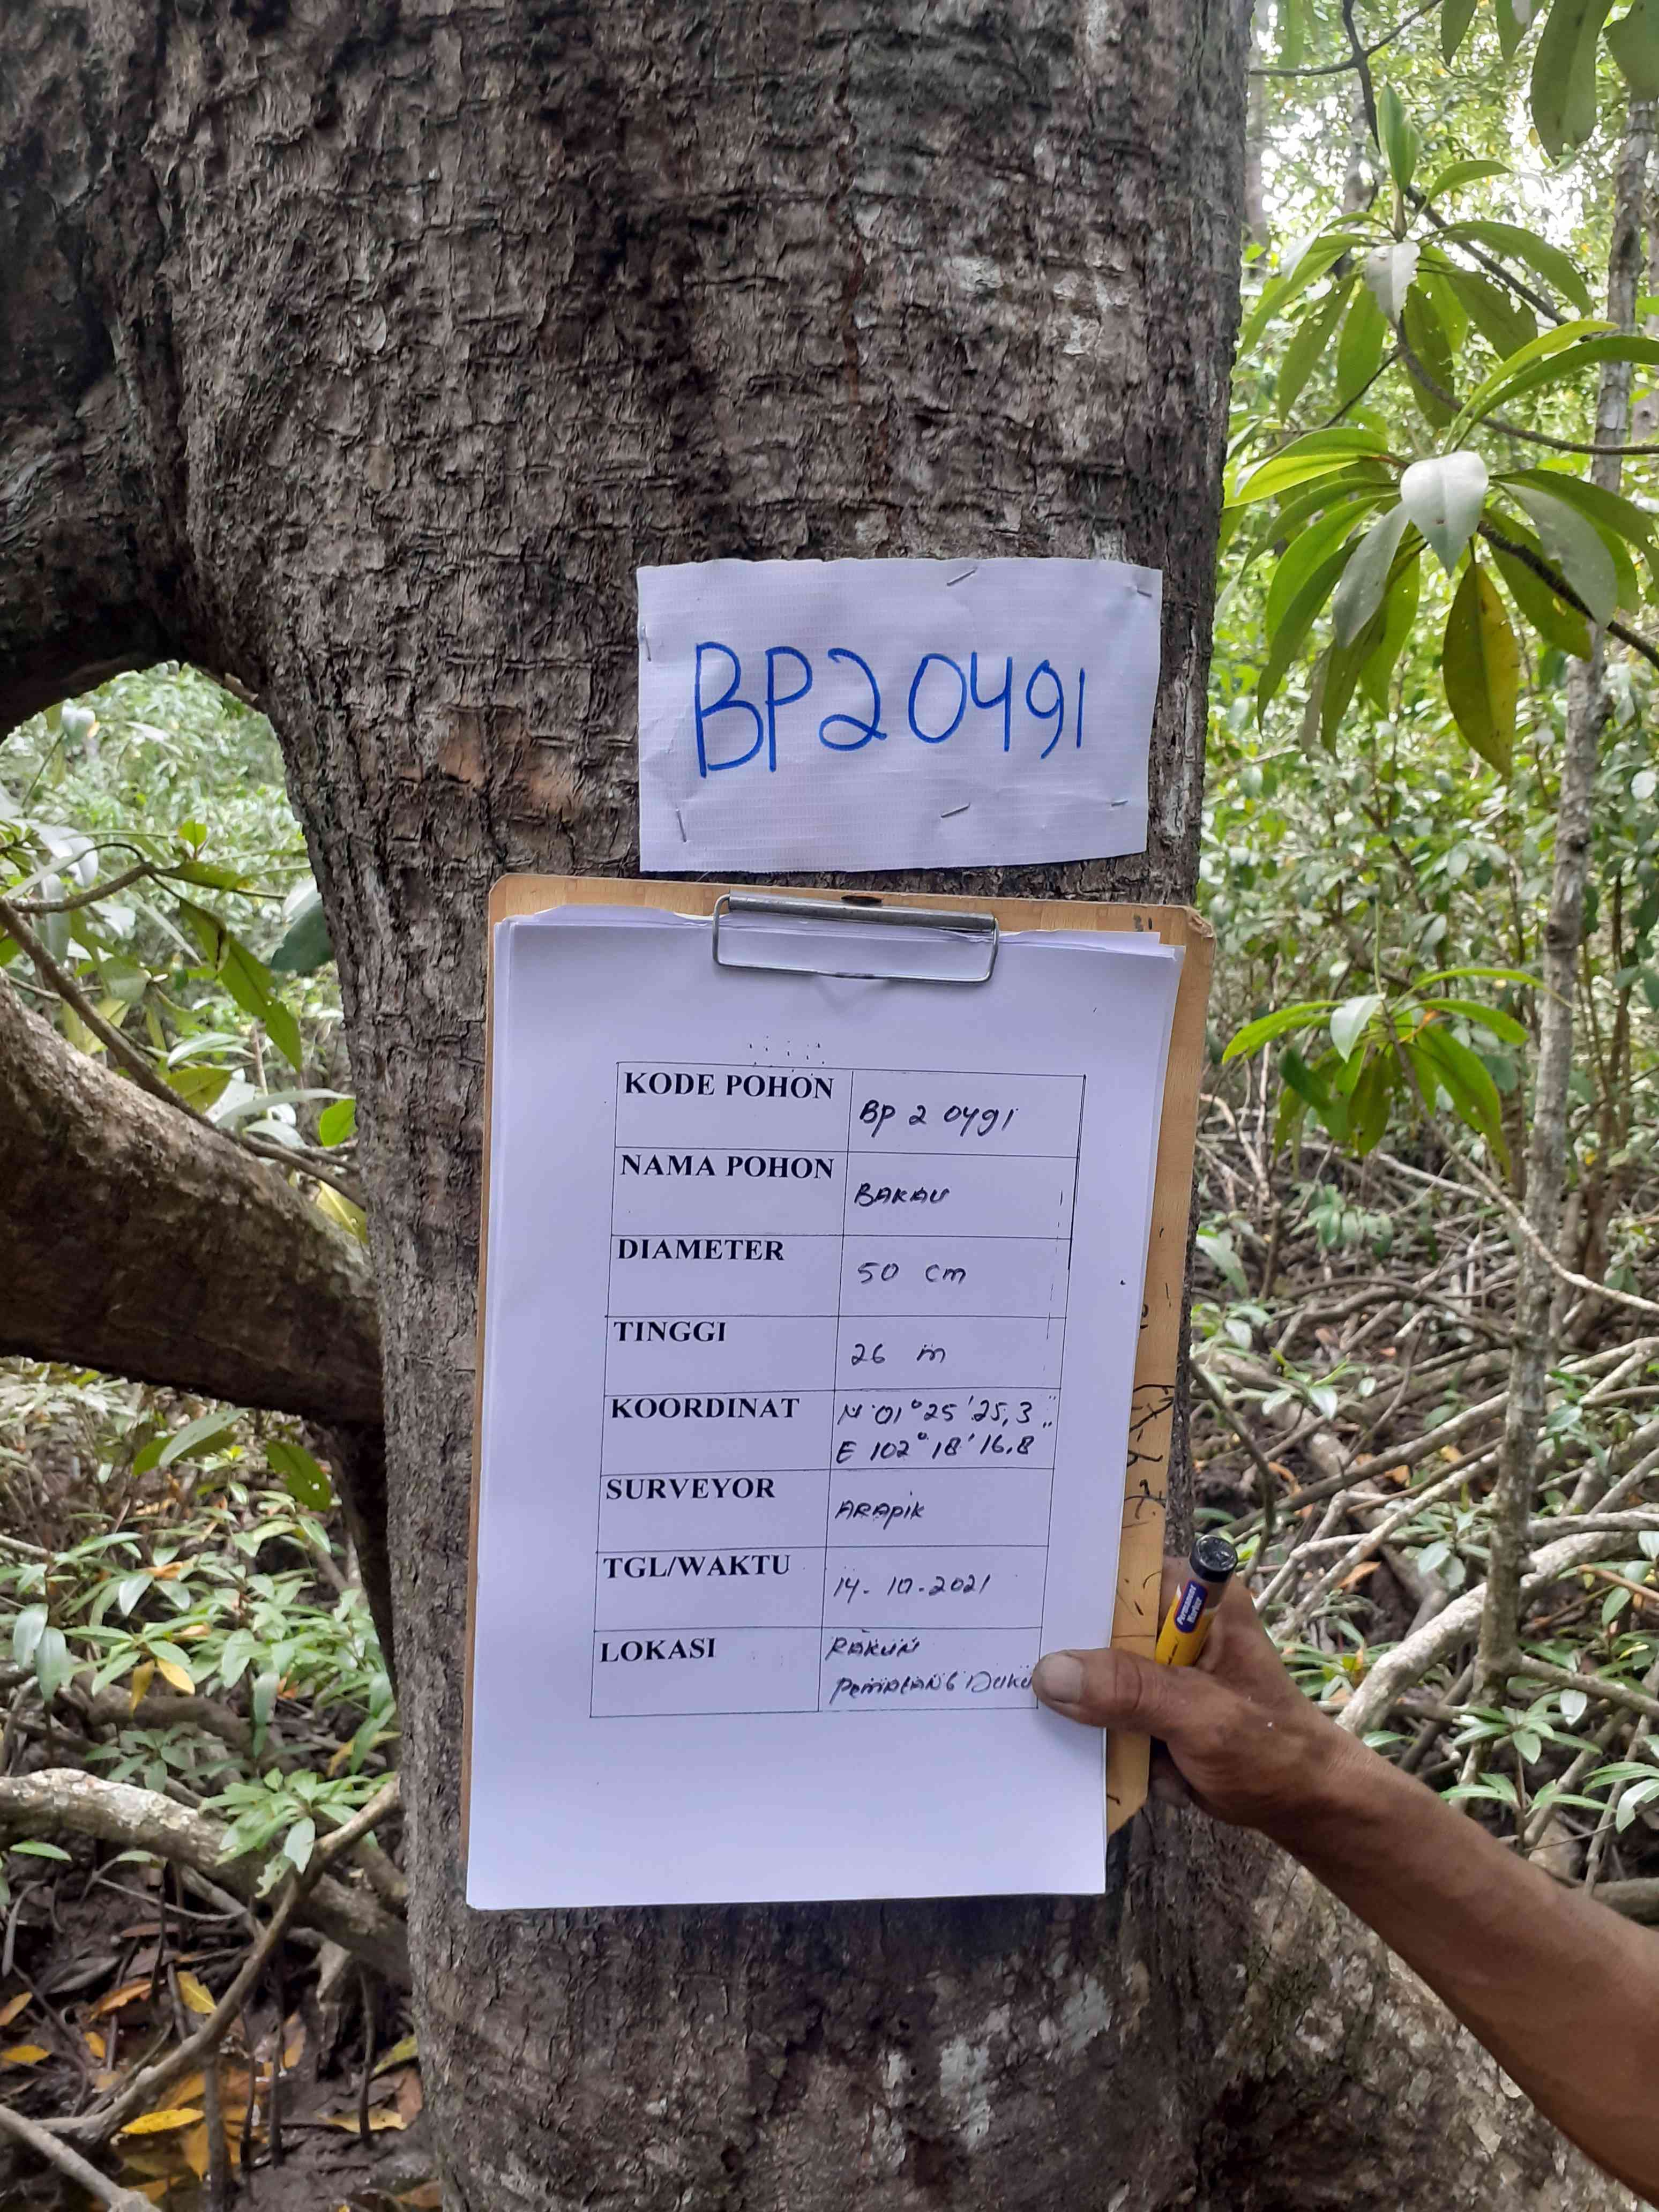 BP20491
KODE POHON BP 2 0491
NAMA POHON BAKAU
DIAMETER 50 cm
TINGGI 26 m
KOORDINAT N 01° 25' 25,3"
E 102° 18' 16.8"
SURVEYOR ARAPIK
TGL/WAKTU 14-10-2021
LOKASI RAKUN
PEMATANG DUKU
Permanent
Marker